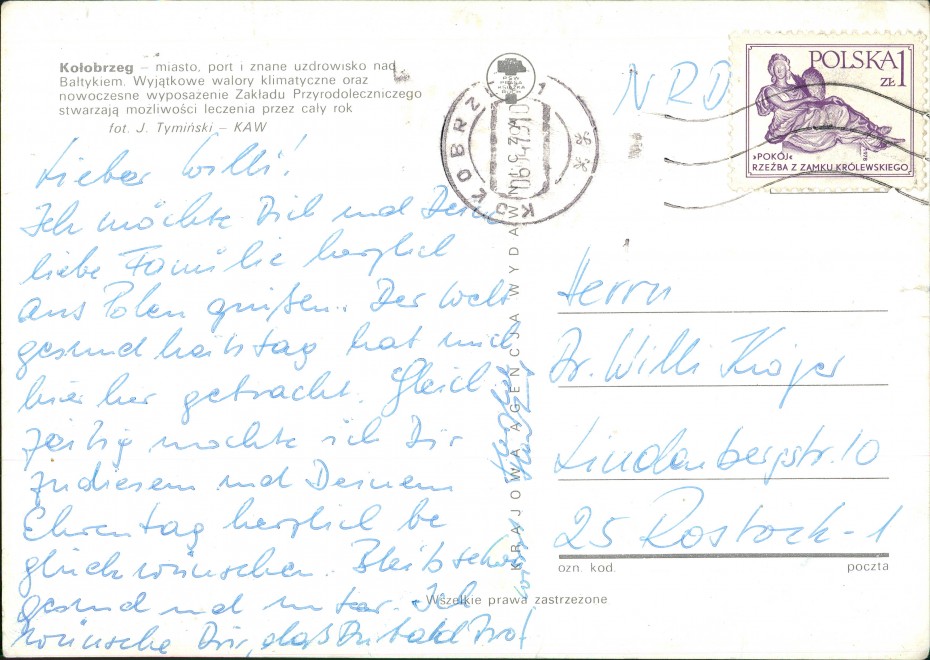 Kołobrzeg – miasto, port i znane uzdrowisko nad
Bałtykiem. Wyjątkowe walory klimatyczne oraz
nowoczesne wyposażenie Zakładu Przyrodoleczniczego
stwarzają możliwości leczenia przez cały rok
fot. J. Tymiński – KAW
Lieber Willi!
Ich möchte Dich und Deine
liebe Familie herzlich
aus Polen grüßen. Der Welt
gesundheitstag hat mich
hier her gebracht. Gleich
zeitig möchte ich Dir
zu diesem und Deinem
Ehrentag herzlich be
glückwünschen. Bleib schön
gesund und munter. Ich
wünsche Dir, daß Du bald Prof
KRAJOWA AGENCJA WYDAWNICZA
KOŁOBRZEG 1
NRD
POLSKA
ZŁ 1
»POKÓJ«
RZEŹBA Z ZAMKU KRÓLEWSKIEGO
Herrn
Dr. Willi
Lindenbergstr. 10
25 Rostock-1
ozn. kod.
poczta
Wszelkie prawa zastrzeżone